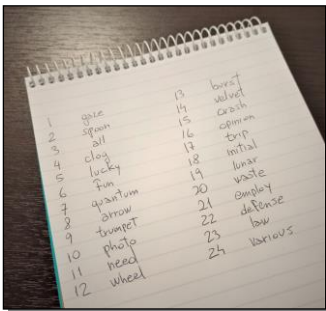 1 gaze
2
3 all
4 clog
5 lucky
6 fun
7 quantum
8 arrow
9 trumpet
10 photo
11 need
12 wheel
13 burst
14 velvet
15 crash
16 opinion
17 trip
18 initial
19 lunar
20 waste
21 employ
22 defense
23 law
24 various